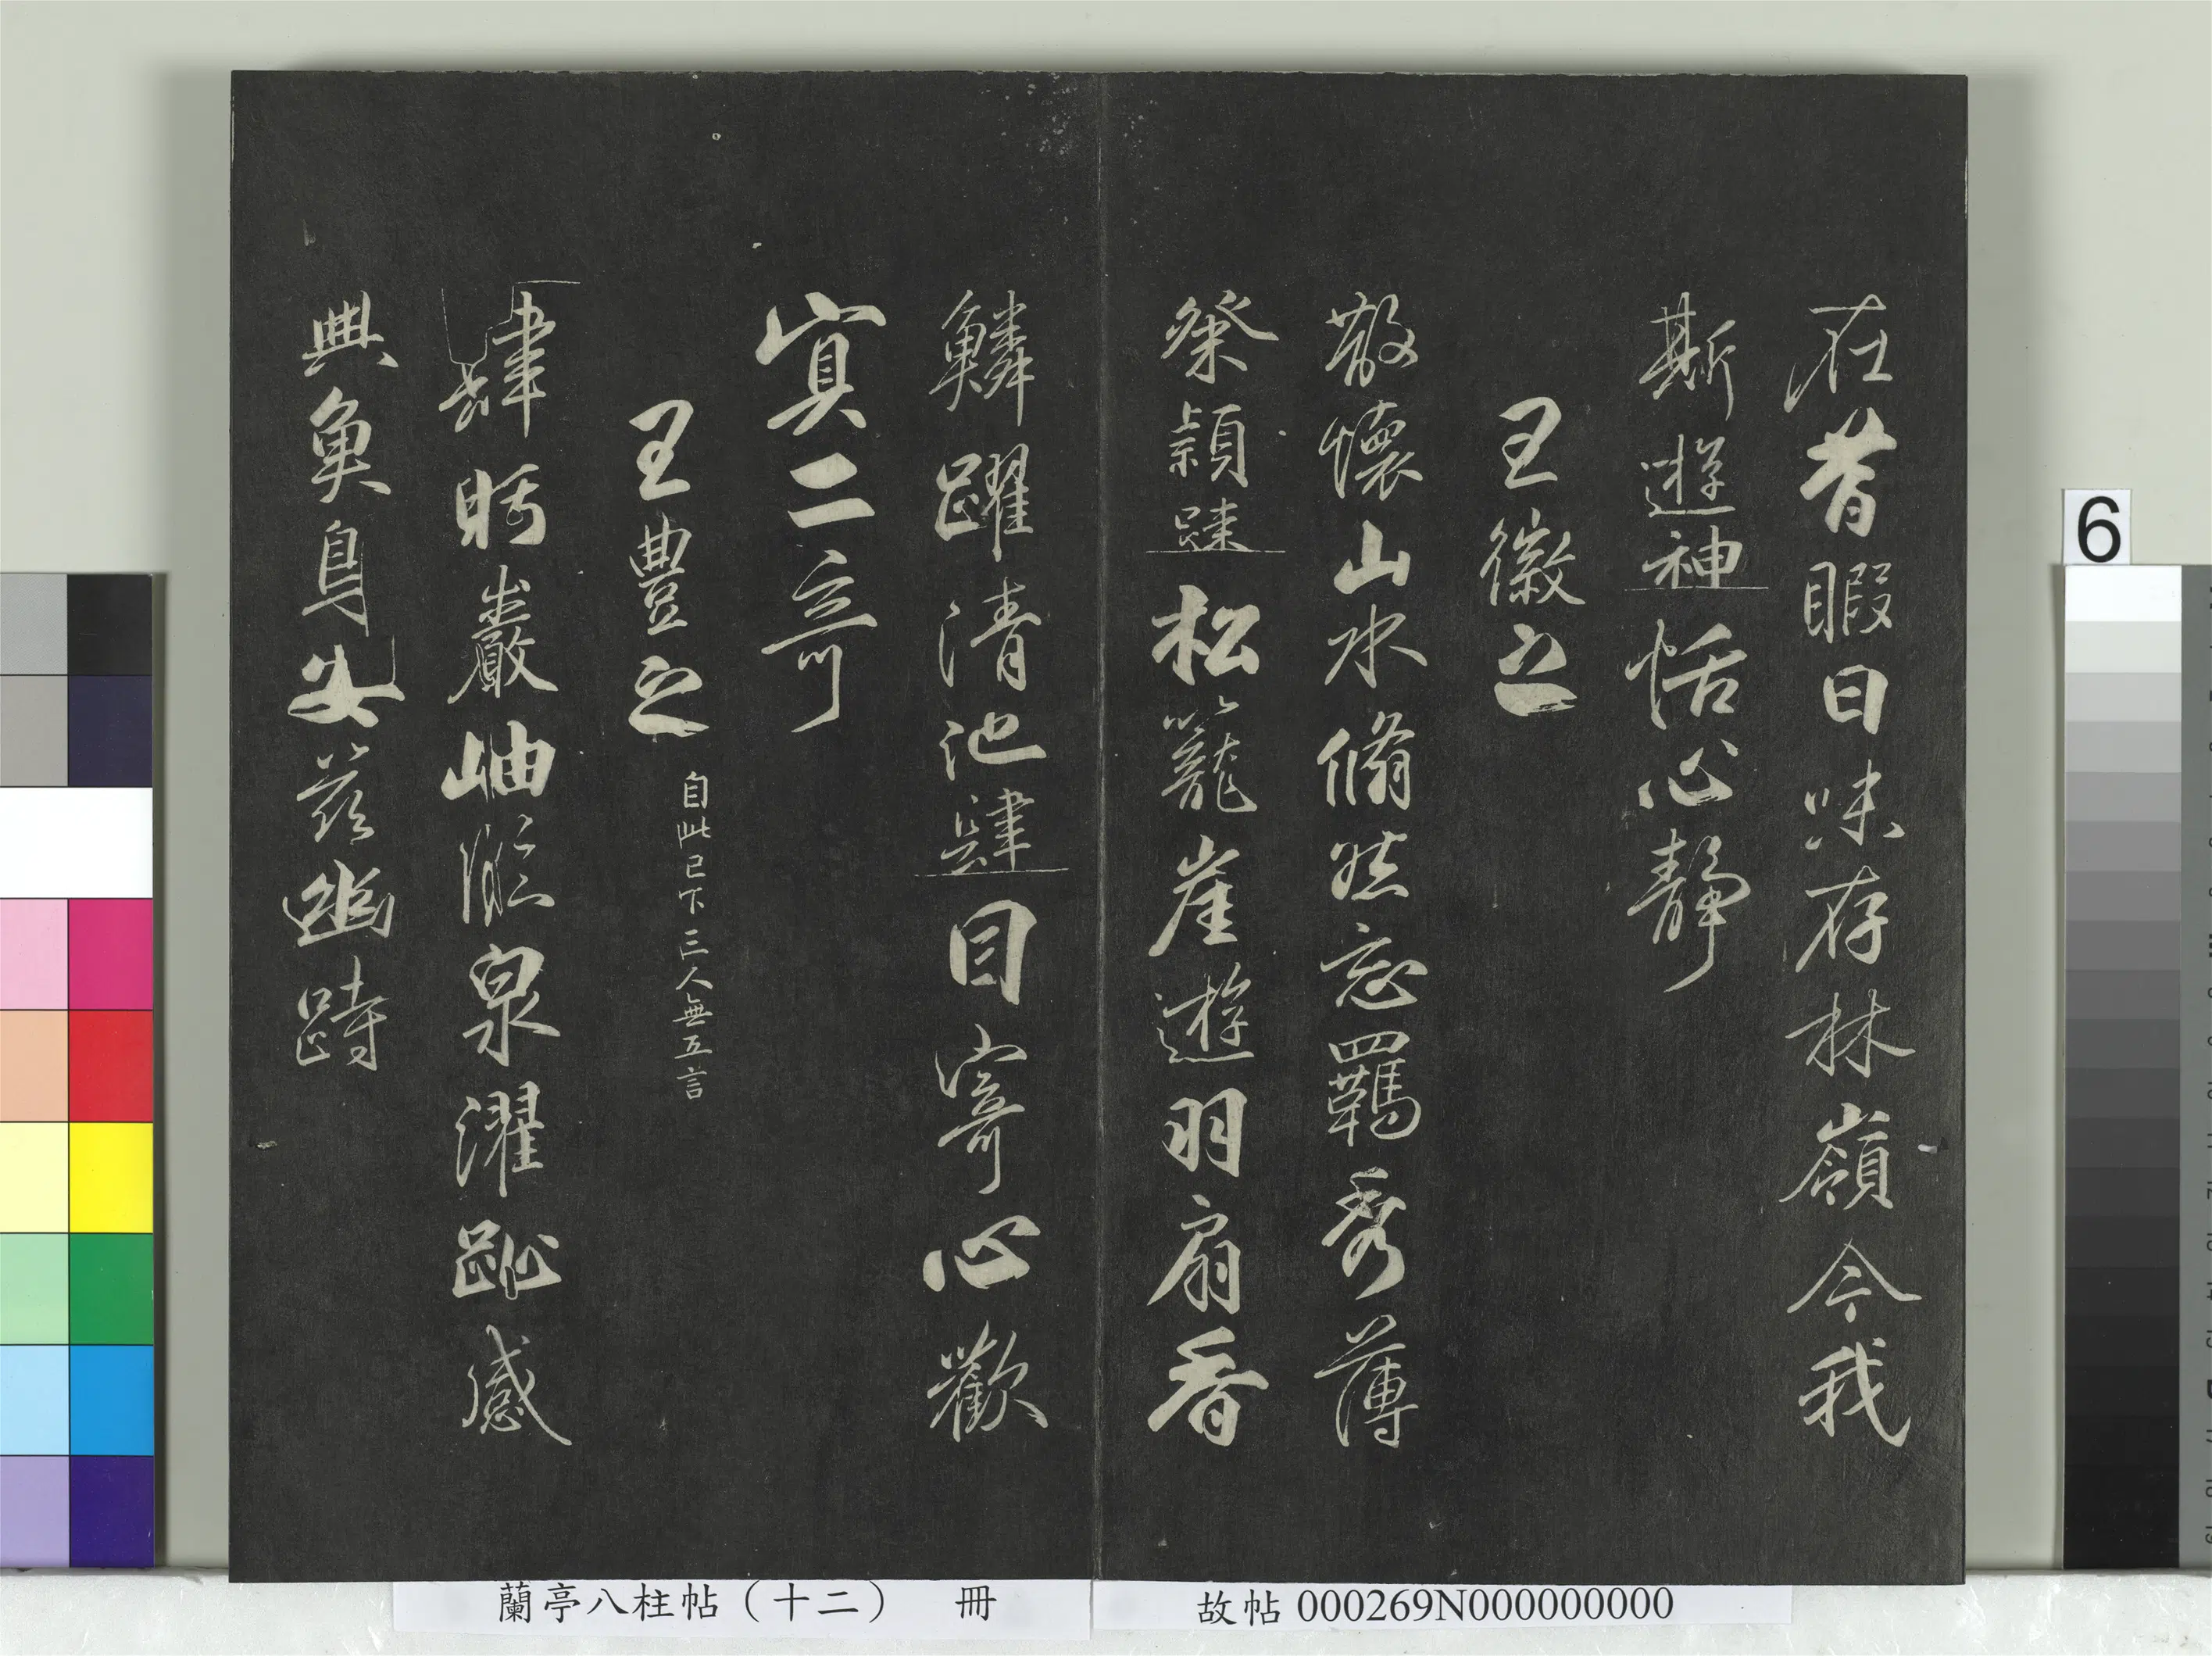 在昔暇日味存林嶺今我
斯遊神怡心靜
王徽之
散懷山水脩然忘羈秀薄
粲穎踈松籠崖遊羽扇香
鱗躍清池肆目寄心歡
寘二奇
王豊之 自此已下三人無五言
肆眄巖岫臨泉濯趾感
興魚鳥安茲幽跱
蘭亭八柱帖(十二) 冊
故帖 000269N000000000
6